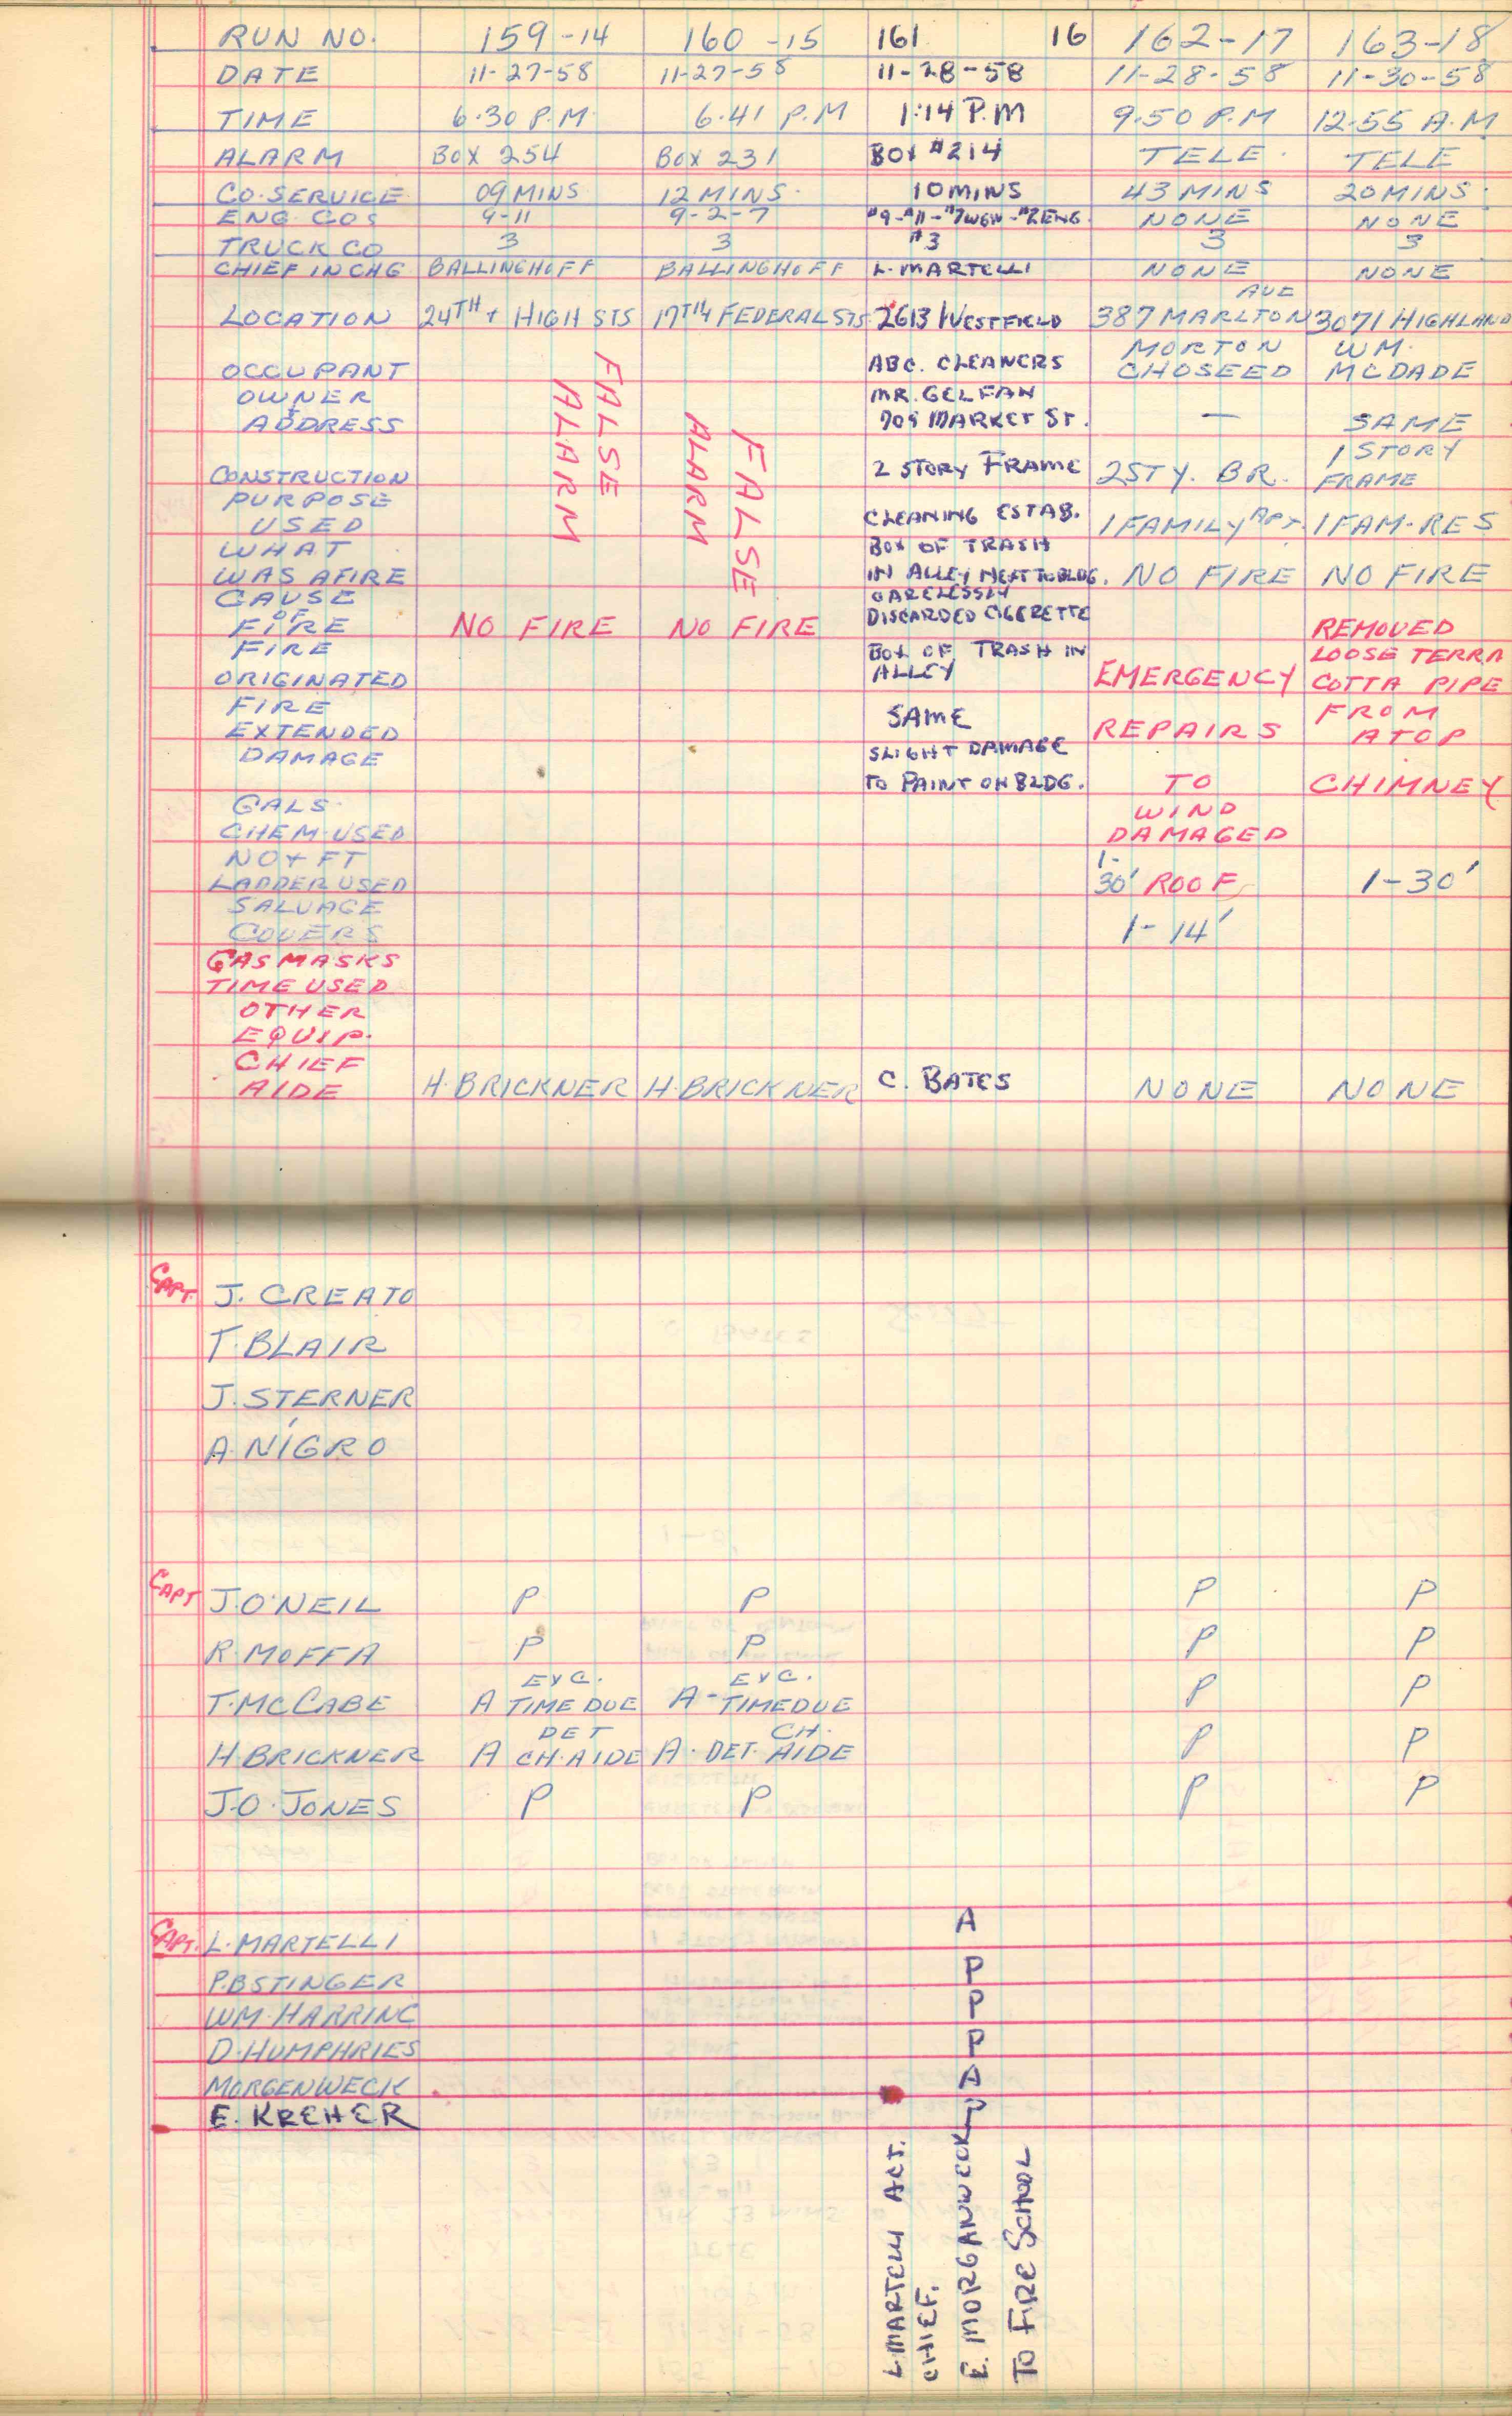 RUN NO. 159-14 160-15 161 16 162-17 163-18
DATE 11-27-58 11-27-58 11-28-58 11-28-58 11-30-58
TIME 6.30 P.M. 6.41 P.M 1:14 P.M 9.50 P.M 12.55 A.M
ALARM BOX 254 BOX 231 BOX #214 TELE. TELE
CO. SERVICE 09 MINS 12 MINS. 10 MINS 43 MINS 20 MINS.
ENG. COS 9-11 9-2-7 #9-#11-#7WGN-#2ENG. NONE NONE
TRUCK CO 3 3 #3 3 3
CHIEF IN CHG BALLINGHOFF BALLINGHOFF L. MARTELLI NONE NONE
AVE
LOCATION 24TH + HIGH STS 17TH FEDERAL STS 2613 WESTFIELD 387 MARLTON 3071 HIGHLAND
MORTON WM.
OCCUPANT ABC. CLEANERS CHOSEED MCDADE
OWNER MR. GELFAN
+
ADDRESS 709 MARKET ST. — SAME
FALSE
ALARM
FALSE
ALARM
1 STORY
CONSTRUCTION 2 STORY FRAME 2STY. BR. FRAME
PURPOSE
USED CLEANING ESTAB. 1 FAMILY APT. 1 FAM. RES
WHAT BOX OF TRASH
WAS AFIRE IN ALLEY NEXT TO BLDG. NO FIRE NO FIRE
CAUSE CARELESSLY
OF
FIRE NO FIRE NO FIRE DISCARDED CIGERETTE REMOVED
FIRE BOX OF TRASH IN LOOSE TERRA
ORIGINATED ALLEY EMERGENCY COTTA PIPE
FIRE SAME FROM
EXTENDED REPAIRS ATOP
DAMAGE SLIGHT DAMAGE
TO PAINT ON BLDG. TO CHIMNEY
GALS. WIND
CHEM. USED DAMAGED
NO + FT 1-
LADDER USED 30' ROOF 1-30'
SALVAGE
COVERS 1-14'
GAS MASKS
TIME USED
OTHER
EQUIP.
CHIEF
AIDE H. BRICKNER H. BRICKNER C. BATES NONE NONE
CAPT. J. CREATO
T. BLAIR
J. STERNER
A. NIGRO
CAPT J. O'NEIL P P P P
R. MOFFA P P P P
EXC. EXC.
T. MCCABE A TIME DUE A - TIME DUE P P
DET CH.
H. BRICKNER A CH. AIDE A. DET. AIDE P P
J.O. JONES P P P P
CAPT. L. MARTELLI A
P.BSTINGER P
WM. HARRING P
D. HUMPHRIES P
MORGENWECK A
E. KREHER P
L. MARTELLI ACT.
CHIEF.
E. MORGANWECK
TO FIRE SCHOOL